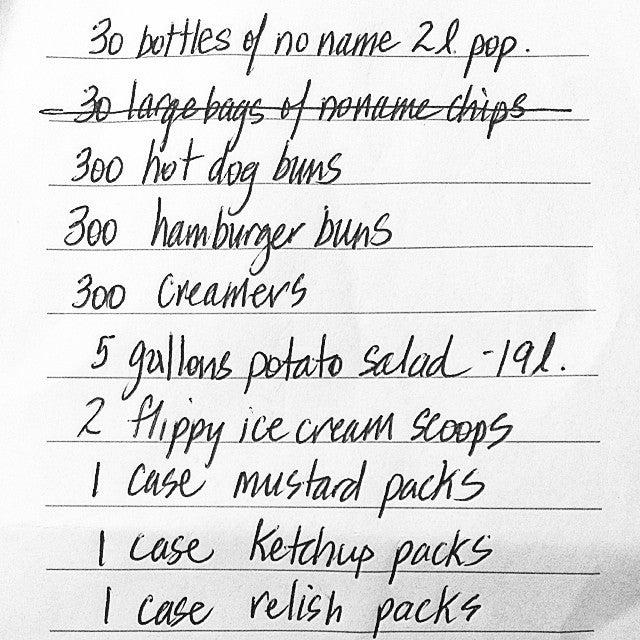 30 bottles of no name 2l pop.
30 large bags of no name chips
300 hot dog buns
300 hamburger buns
300 creamers
5 gallons potato salad - 19l.
2 flippy ice cream scoops
1 case mustard packs
1 case ketchup packs
1 case relish packs